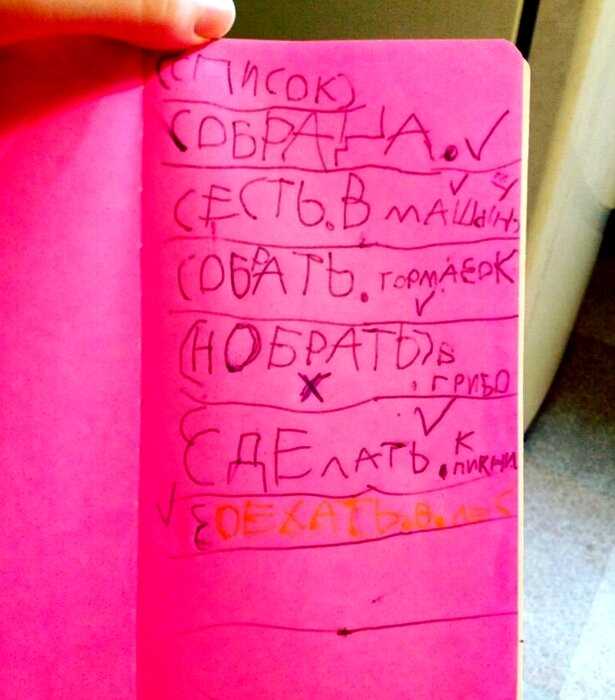 (СПИСОК)
СОБРАНА.
СЕСТЬ.В МАШЫН
СОБРАТЬ. ТОРМАЕОК
(НОБРАТЬ) В
ГРИБО
СДЕЛАТЬ. К
ПИКНИ
ОЕХАТЬ.В.ЛЕС